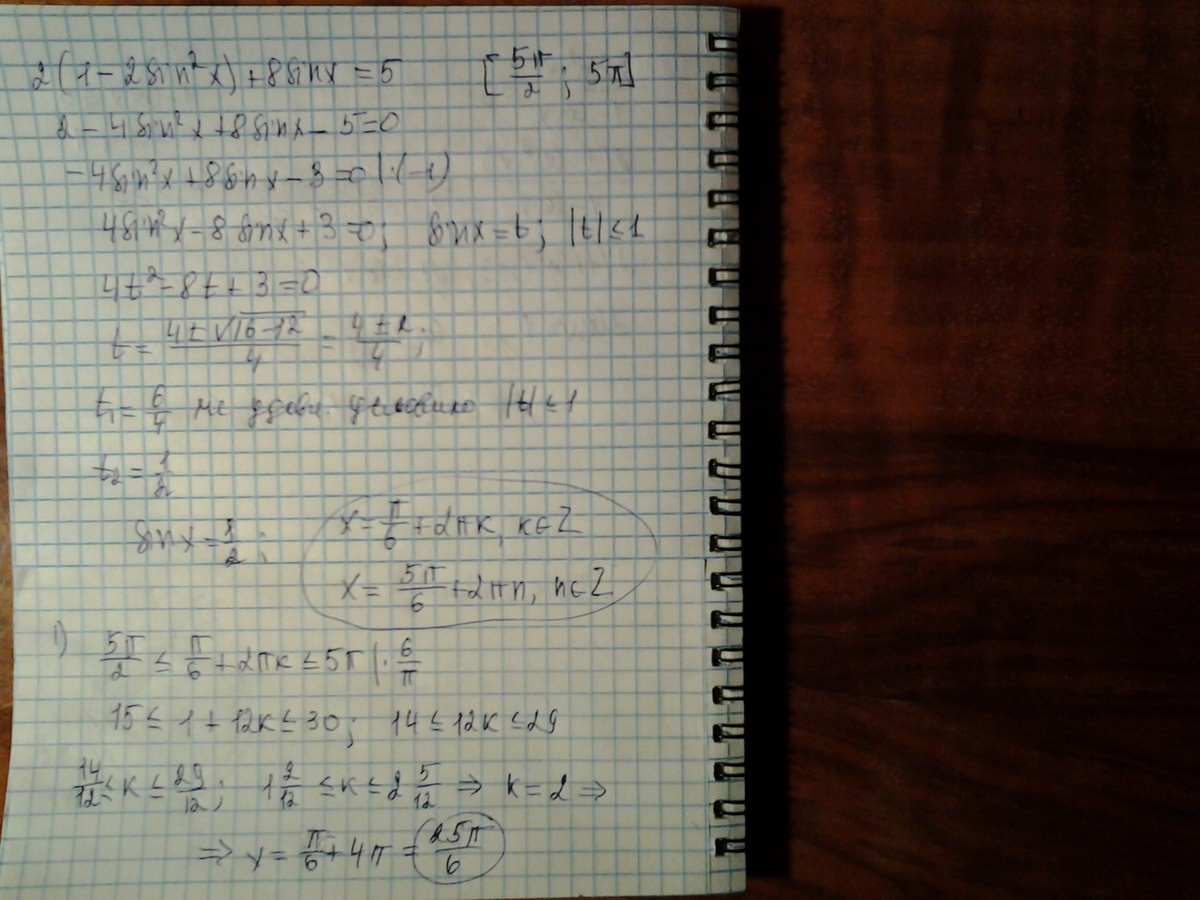 2(1-2sin²x)+8sinx=5 [5π/2; 5π]
2-4sin²x+8sinx-5=0
-4sin²x+8sinx-3=0 |·(-1)
4sin²x-8sinx+3=0; sinx=t; |t|≤1
4t²-8t+3=0
t= (4±√(16-12))/4 = (4±2)/4;
t₁=6/4 не удовл. условию |t|≤1
t₂=1/2
sinx=1/2; x=π/6+2πk, k∈Z
x=5π/6+2πn, n∈Z
1) 5π/2 ≤ π/6+2πk ≤ 5π |·6/π
15≤1+12k≤30; 14≤12k≤29
14/12≤k≤29/12; 1 2/12 ≤k≤2 5/12 ⇒ k=2 ⇒
⇒ x=π/6+4π=25π/6